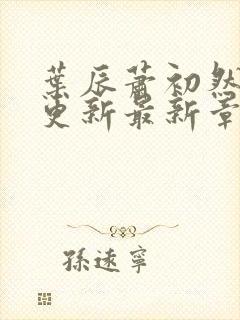 葉辰蕭初然
更新最新章
孫遠寧